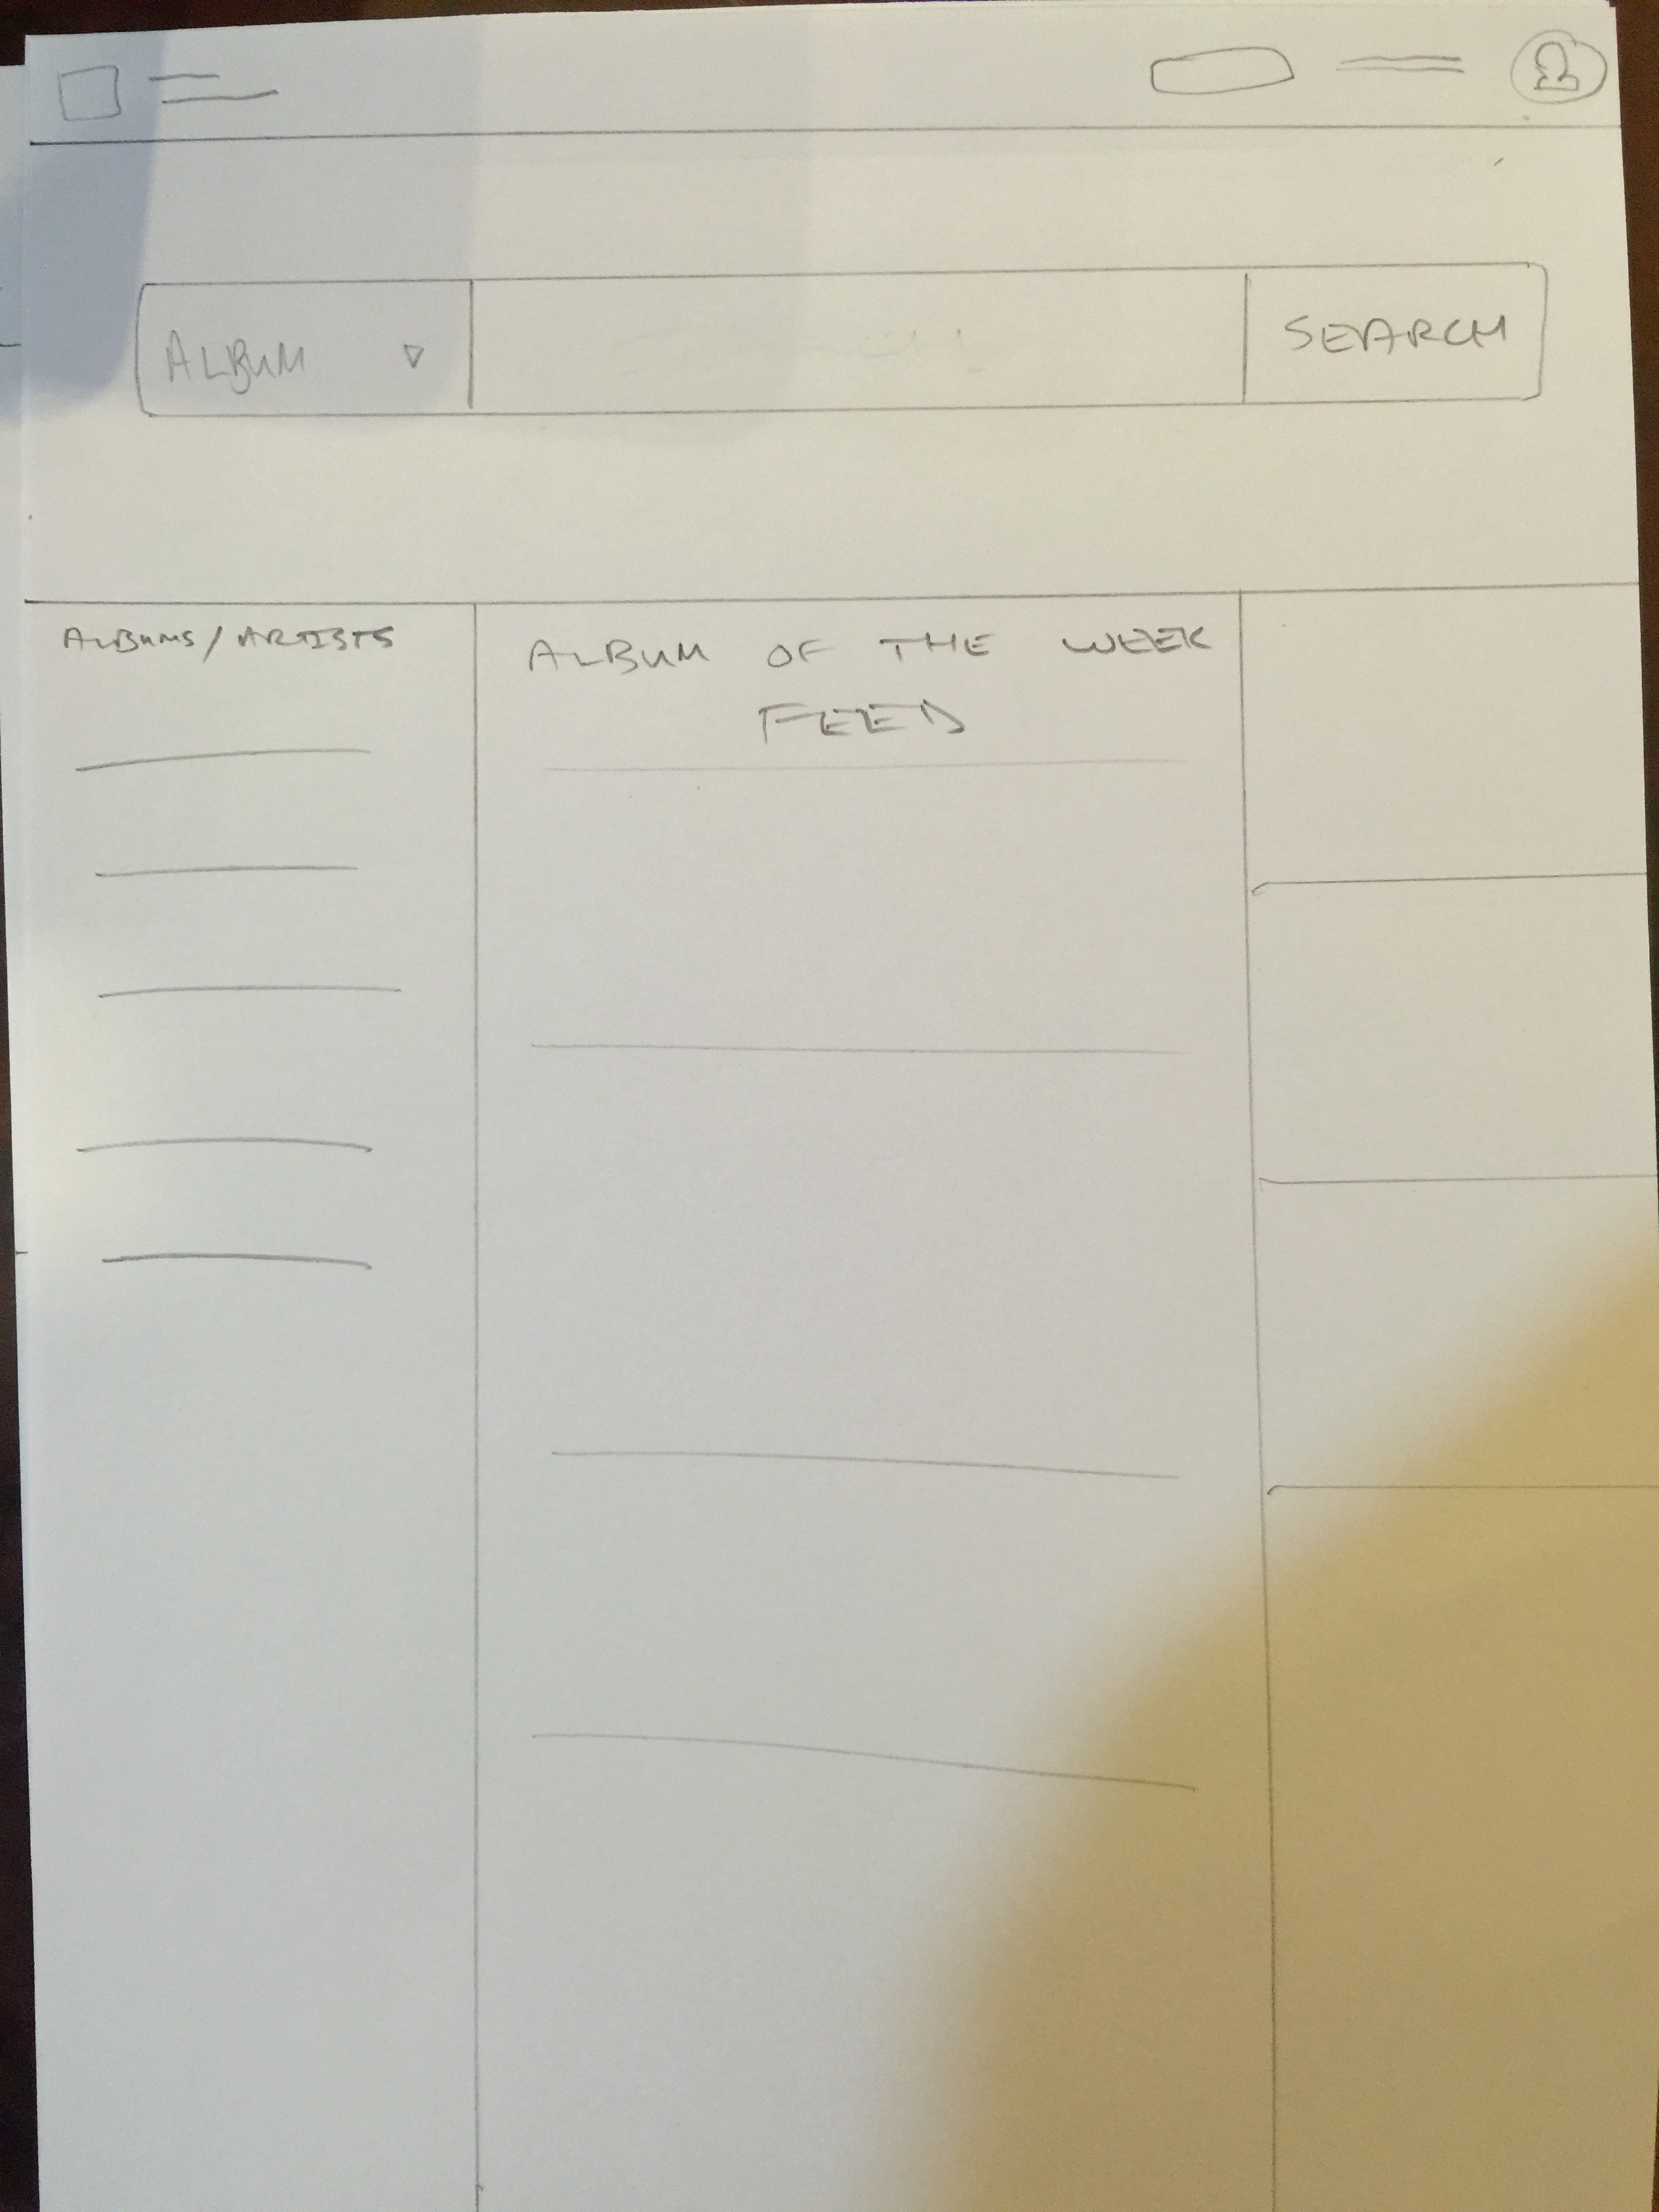 ALBUM
SEARCH
ALBUMS/ARTISTS
ALBUM OF THE WEEK
FEED